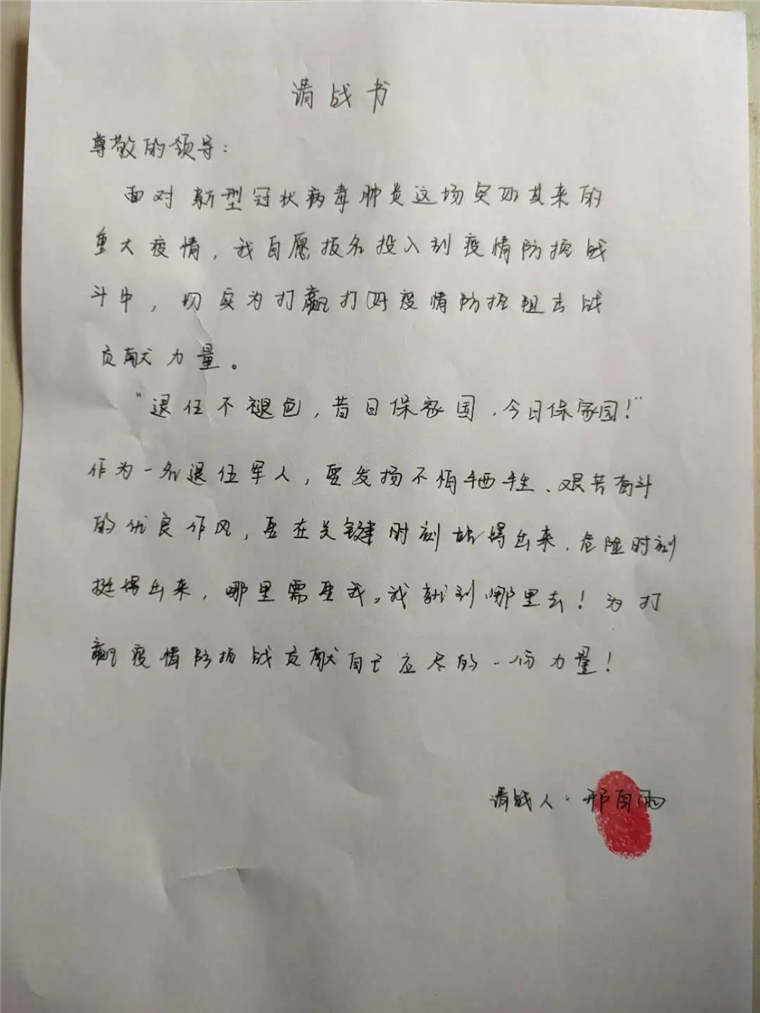 请战书
尊敬的领导：
面对新型冠状病毒肺炎这场突如其来的
重大疫情，我自愿报名投入到疫情防控战
斗中，切实为打赢打好疫情防控阻击战
贡献力量。
“退伍不褪色，昔日保家国，今日保家园！”
作为一名退伍军人，要发扬不怕牺牲、艰苦奋斗
的优良作风，要在关键时刻站得出来，危险时刻
挺得出来，哪里需要我，我就到哪里去！为打
赢疫情防控战贡献自己应尽的一份力量！
请战人：邢自雨